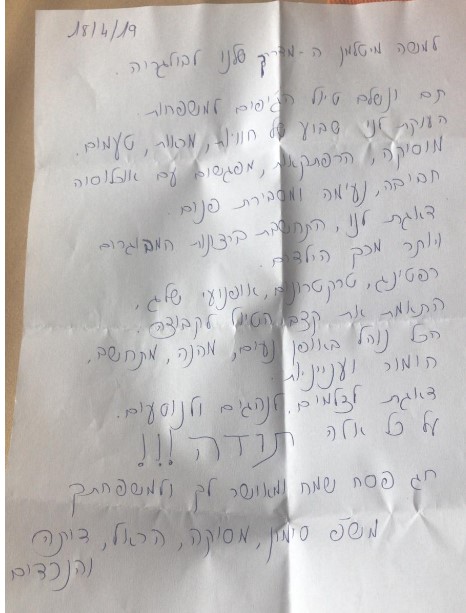 18/4/19
למשה מיטלמן ה-מדריך שלנו לבולגריה.
תם ונשלם טיול הג'יפים למשפחות.
הענקת לנו שבוע של חוויות, מראות, טעמים.
מוסיקה, הרפתקאות, מפגשים עם אוכלוסיה
חביבה, נעימה ומסבירת פנים.
דאגת לנו, התחשבת ברצונות המבוגרים
ויותר מכך הילדים.
רפטינג, טרקטרונים, אופנועי שלג,
התאמת את קצב הטיול לקבוצה.
הכל נוהל באופן נעים, מהנה, מתחשב,
הומור וענייניות.
דאגת לצלמים, לנהגים ולנוסעים.
על כל אלה תודה !!!
חג פסח שמח ומאושר לך ולמשפחתך
משפ סימון, מסיקה, הראל,
והנכדים